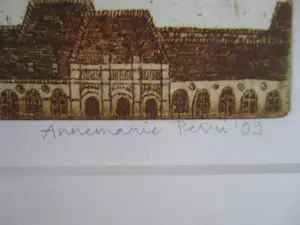 Annemarie Petri '09